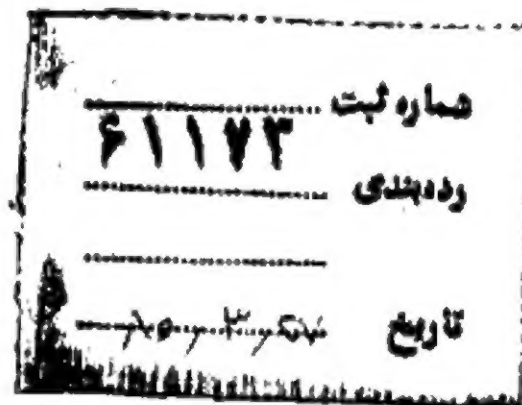 شماره ثبت
۶۱۱۷۳
رده‌بندی
تاریخ